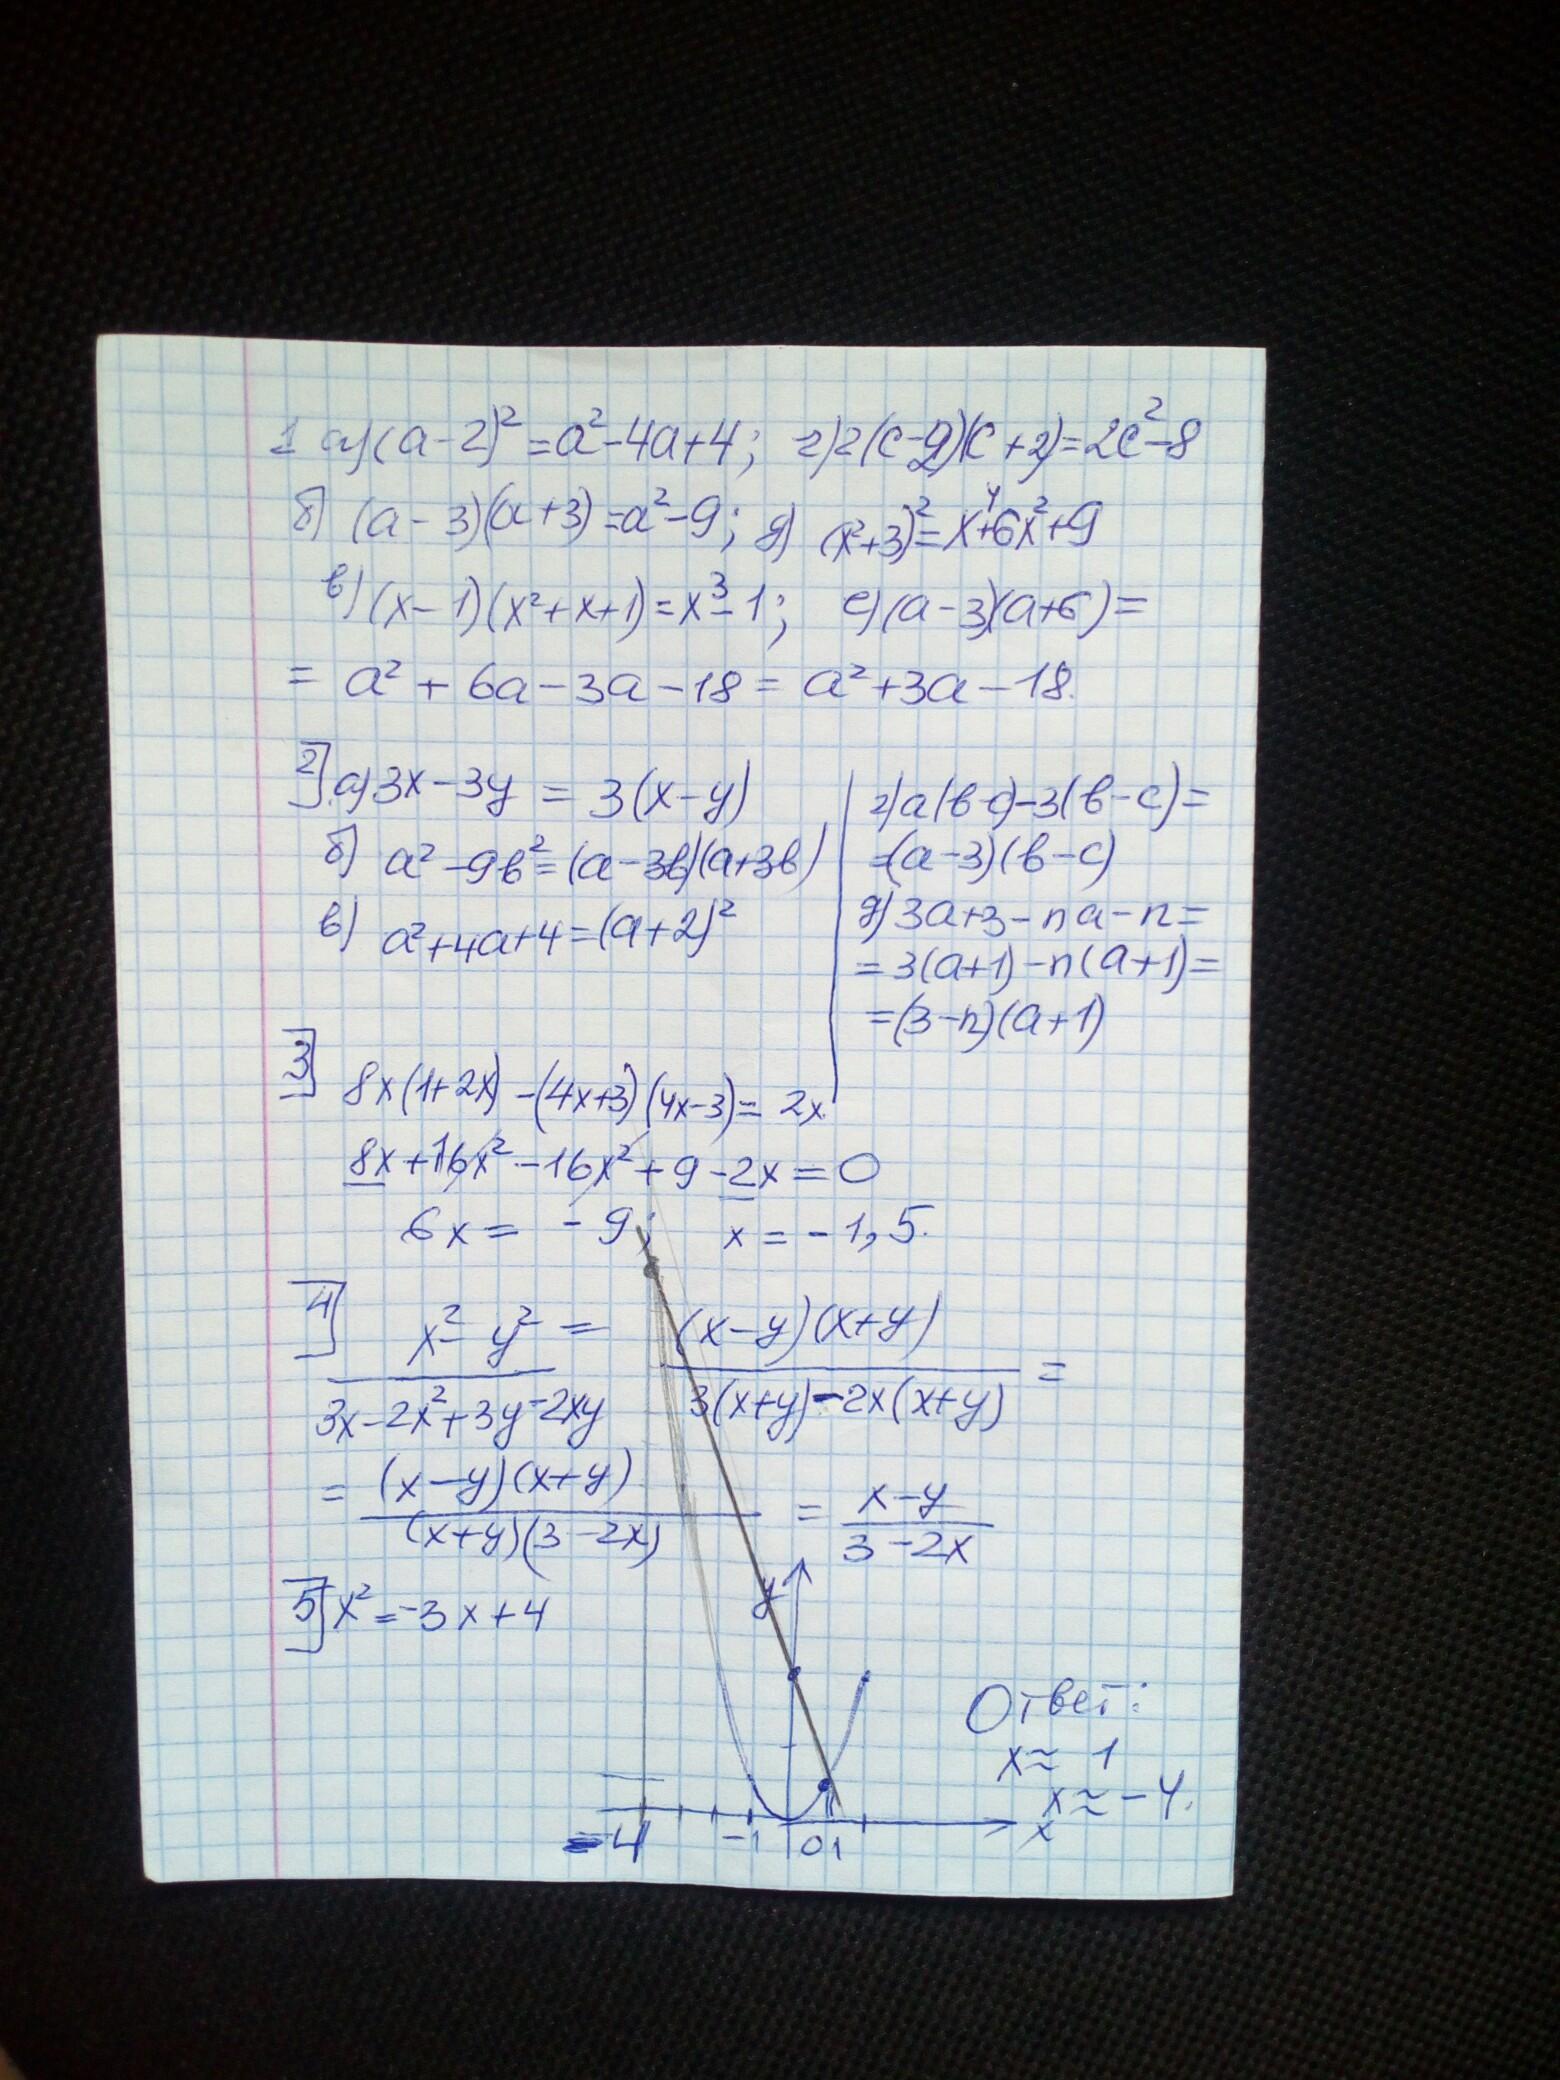 1 а) (a-2)² = a²-4a+4; г) 2(c-2)(c+2) = 2c²-8
б) (a-3)(a+3) = a²-9; д) (x²+3)² = x⁴+6x²+9
в) (x-1)(x²+x+1) = x³-1; е) (a-3)(a+6) =
= a² + 6a - 3a - 18 = a² + 3a - 18.
2] а) 3x - 3y = 3(x-y)
б) a² - 9в² = (a-3в)(a+3в)
в) a²+4a+4 = (a+2)²
г) a(в-c) - 3(в-c) =
=(a-3)(в-c)
д) 3a+3 - na - n =
= 3(a+1) - n(a+1) =
= (3-n)(a+1)
3] 8x(1+2x) - (4x+3)(4x-3) = 2x
8x + 16x² - 16x² + 9 - 2x = 0
6x = -9; x = -1,5.
4] x² - y² / 3x-2x²+3y-2xy = (x-y)(x+y) / 3(x+y)-2x(x+y) =
= (x-y)(x+y) / (x+y)(3-2x) = x-y / 3-2x
5] x² = -3x+4
y
Ответ:
x ≈ 1
x ≈ -4.
x
-4 -1 0 1